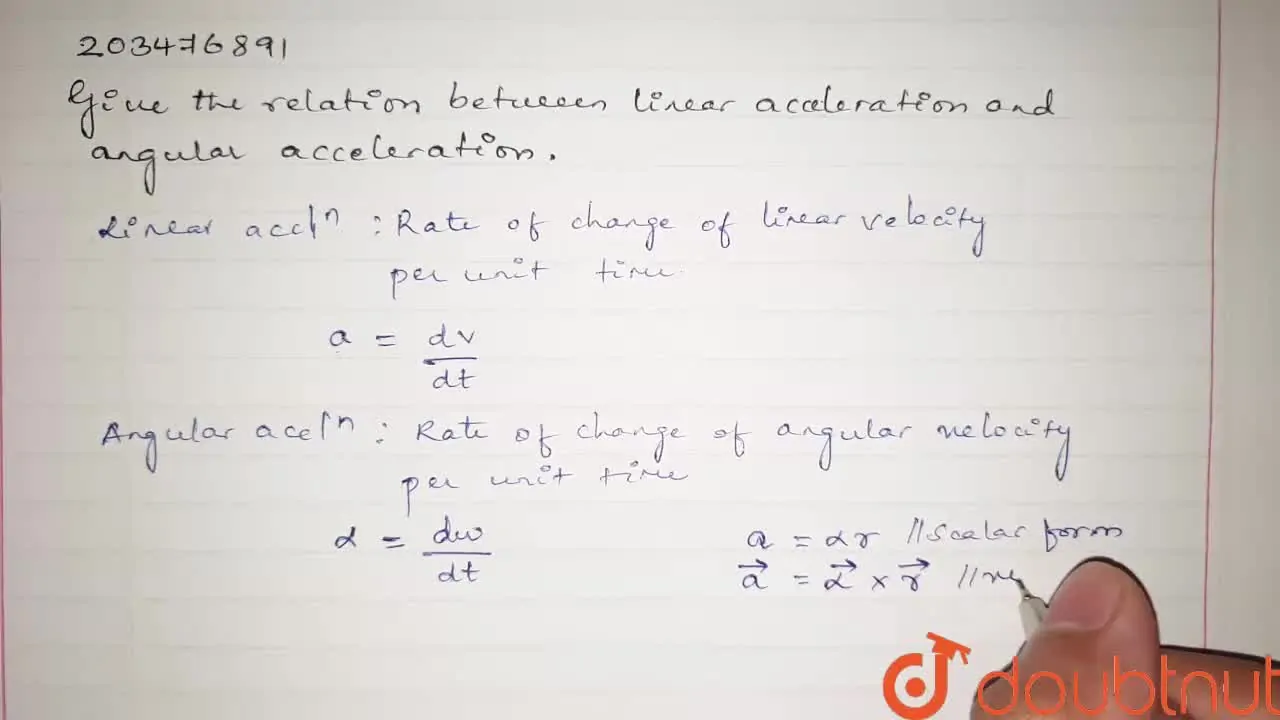 203476891
Give the relation between linear acceleration and
angular acceleration.
Linear accl^n : Rate of change of linear velocity
per unit time.
a = dv/dt
Angular accl^n : Rate of change of angular velocity
per unit time
α = dω/dt
a = αr //Scalar form
a⃗ = α⃗ × r⃗ //ve
doubtnut